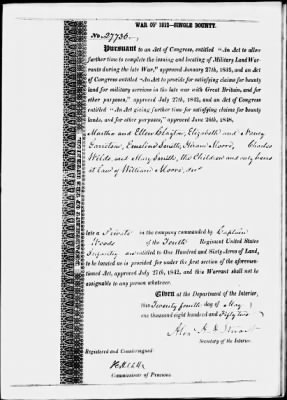 WAR OF 1812—SINGLE BOUNTY.
No. 27736.
Pursuant to an Act of Congress, entitled "An Act to allow
further time to complete the issuing and locating of Military Land Warrants during the late War," approved January 27th, 1835, and an Act
of Congress entitled "An Act to provide for satisfying claims for bounty
land for military services in the late war with Great Britain, and for
other purposes," approved July 27th, 1842, and an Act of Congress
entitled "An Act giving further time for satisfying claims for bounty
lands, and for other purposes," approved June 26th, 1848,
Martha and Ellen Clayton, Elizabeth and Nancy
Garretson, Emeline Smith, Hiram Moore, Charles
Wilds, and Mary Smith, the Children and only heirs
at law of William Moore, dec'd
late a Private in the company commanded by Captain
Woods of the Fourth Regiment United States
Infantry are entitled to One Hundred and Sixty Acres of Land,
to be located as is provided for under the first section of the aforementioned Act, approved July 27th, 1842, and this Warrant shall not be
assignable to any person whatever.
Given at the Department of the Interior,
this Twenty fourth day of May
one thousand eight hundred and Fifty two
Alex. H. H. Stuart
Secretary of the Interior.
Registered and Countersigned
Commissioner of Pensions